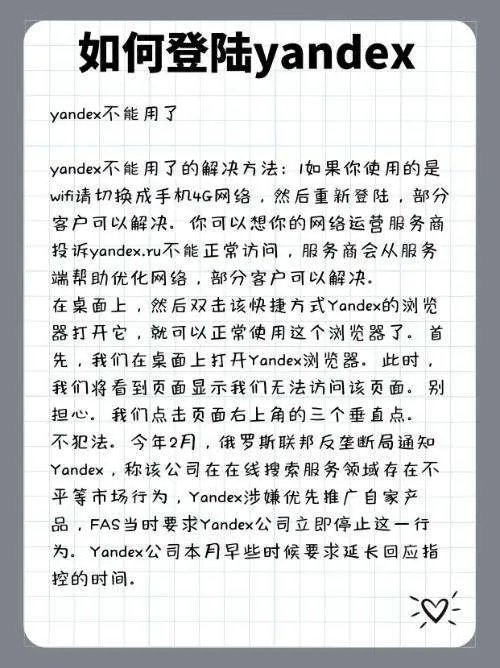 如何登陆yandex
yandex不能用了
yandex不能用了的解决方法：1如果你使用的是
wifi请切换成手机4G网络，然后重新登陆，部分
客户可以解决。你可以想你的网络运营服务商
投诉yandex.ru不能正常访问，服务商会从服务
端帮助优化网络，部分客户可以解决。
在桌面上，然后双击该快捷方式Yandex的浏览
器打开它，就可以正常使用这个浏览器了。首
先，我们在桌面上打开Yandex浏览器。此时，
我们将看到页面显示我们无法访问该页面。别
担心。我们点击页面右上角的三个垂直点。
不犯法。今年2月，俄罗斯联邦反垄断局通知
Yandex，称该公司在在线搜索服务领域存在不
平等市场行为，Yandex涉嫌优先推广自家产
品，FAS当时要求Yandex公司立即停止这一行
为。Yandex公司本月早些时候要求延长回应指
控的时间。